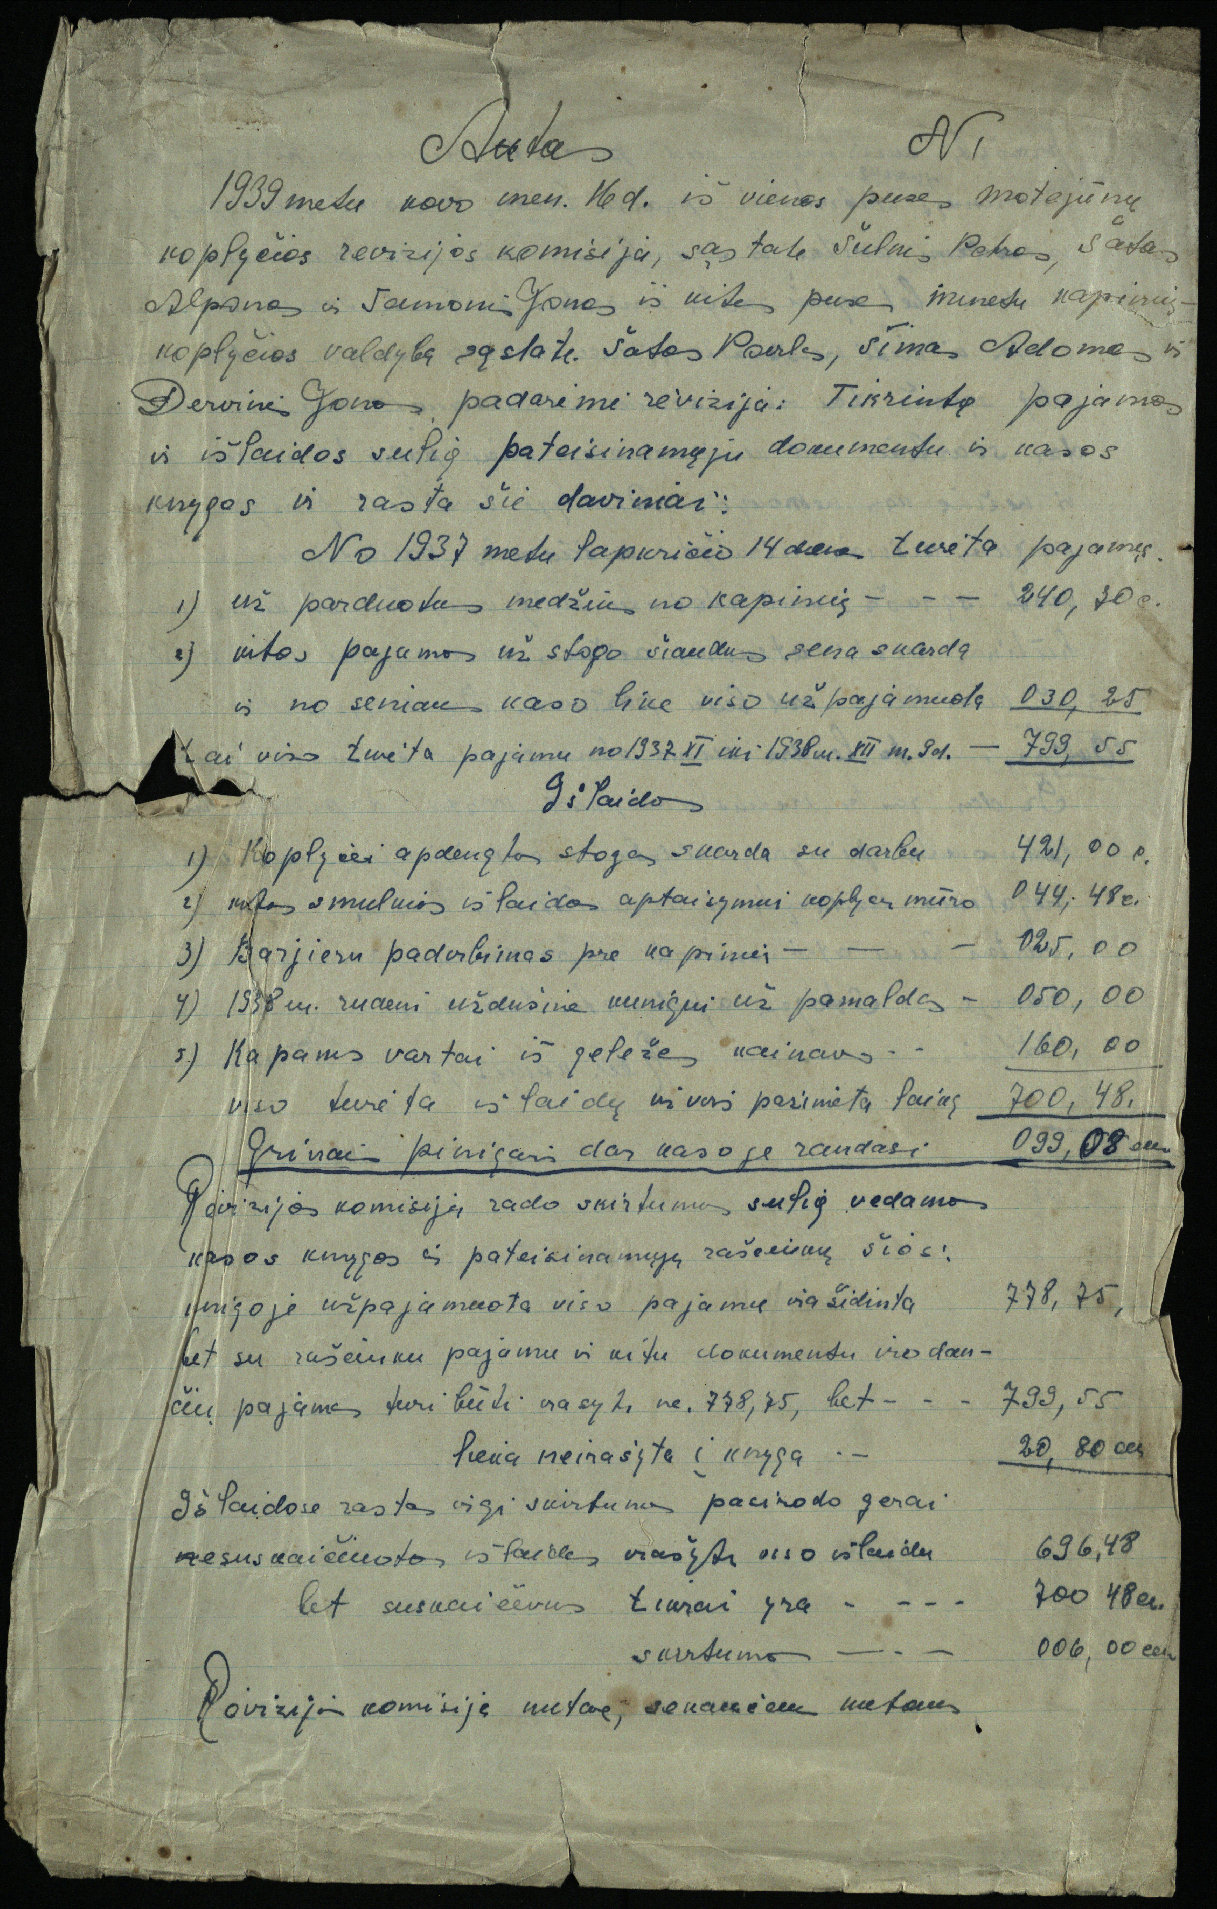 Aktas N 1
1939 metu kovo men. 16 d. iš vienos puses Motejūnų
koplyčios revizijos komisija, sąstate Šulnis Petras, Šatas
Alponas ir Tamonis Jonas iš kitos puses minetu kapinių-
koplyčios valdybą sąstate. Šatas Povils, Šimas Adomas ir
Dervinis Jonas padarimi revizija: Tikrinta pajamos
ir išlaidos sulig pateisinamųjų dokumentu ir kasos
knygos ir rasta šie daviniai:
No 1937 metu lapkričio 14 dien turėta pajamų.
1) už parduotus medžius no kapinių - - - 240,30 c.
2) kitos pajamos už stogo šiaudus sena skarda
ir no seniau kaso like viso užpajamuota 030,25
tai viso turėta pajamu no 1937 XI iki 1938 m. XII m. 9 d. — 799,55
Išlaidos
1) Koplyčiei apdengtas stogas skarda su darbu 421,00 c.
2) kitos smulkios išlaidos aptaisymui koplyčių mūro 044,48 c.
3) Barjieru padirbimas pre kapinių - — - 025,00
4) 1938 m. rudeni uždušine kunigui už pamaldas - 050,00
5) Kapams vartai iš geležes kainavo - - 160,00
viso turėta išlaidų už visi pazimėta laiką 700,48.
Grinais pinigais dar kasoje randasi 099,08 cen
Rivizijos komisija rado skirtumus sulig vedamos
kasos knygos ir pateisinamųjų rašteliukų šios:
knigoje užpajamuota viso pajamu virašidinta 778,75,
bet su rašteiuku pajamu ir kitu dokumentu irodan-
čiu pajamos turi būti irasyti ne. 778,75, bet - - - 799,55
lieka neirašyta į knyga - — 20,80 cen
Išlaidose rastas irgi skirtumas pasirodo gerai
nesuskaičiuotos išlaidos irašyti viso išlaidu 696,48
bet suskaičivus tikrai yra - - - - 700 48 cen.
skirtumas — - — 006,00 cen
Rivizijos komisija nutarė, sekančiam metams